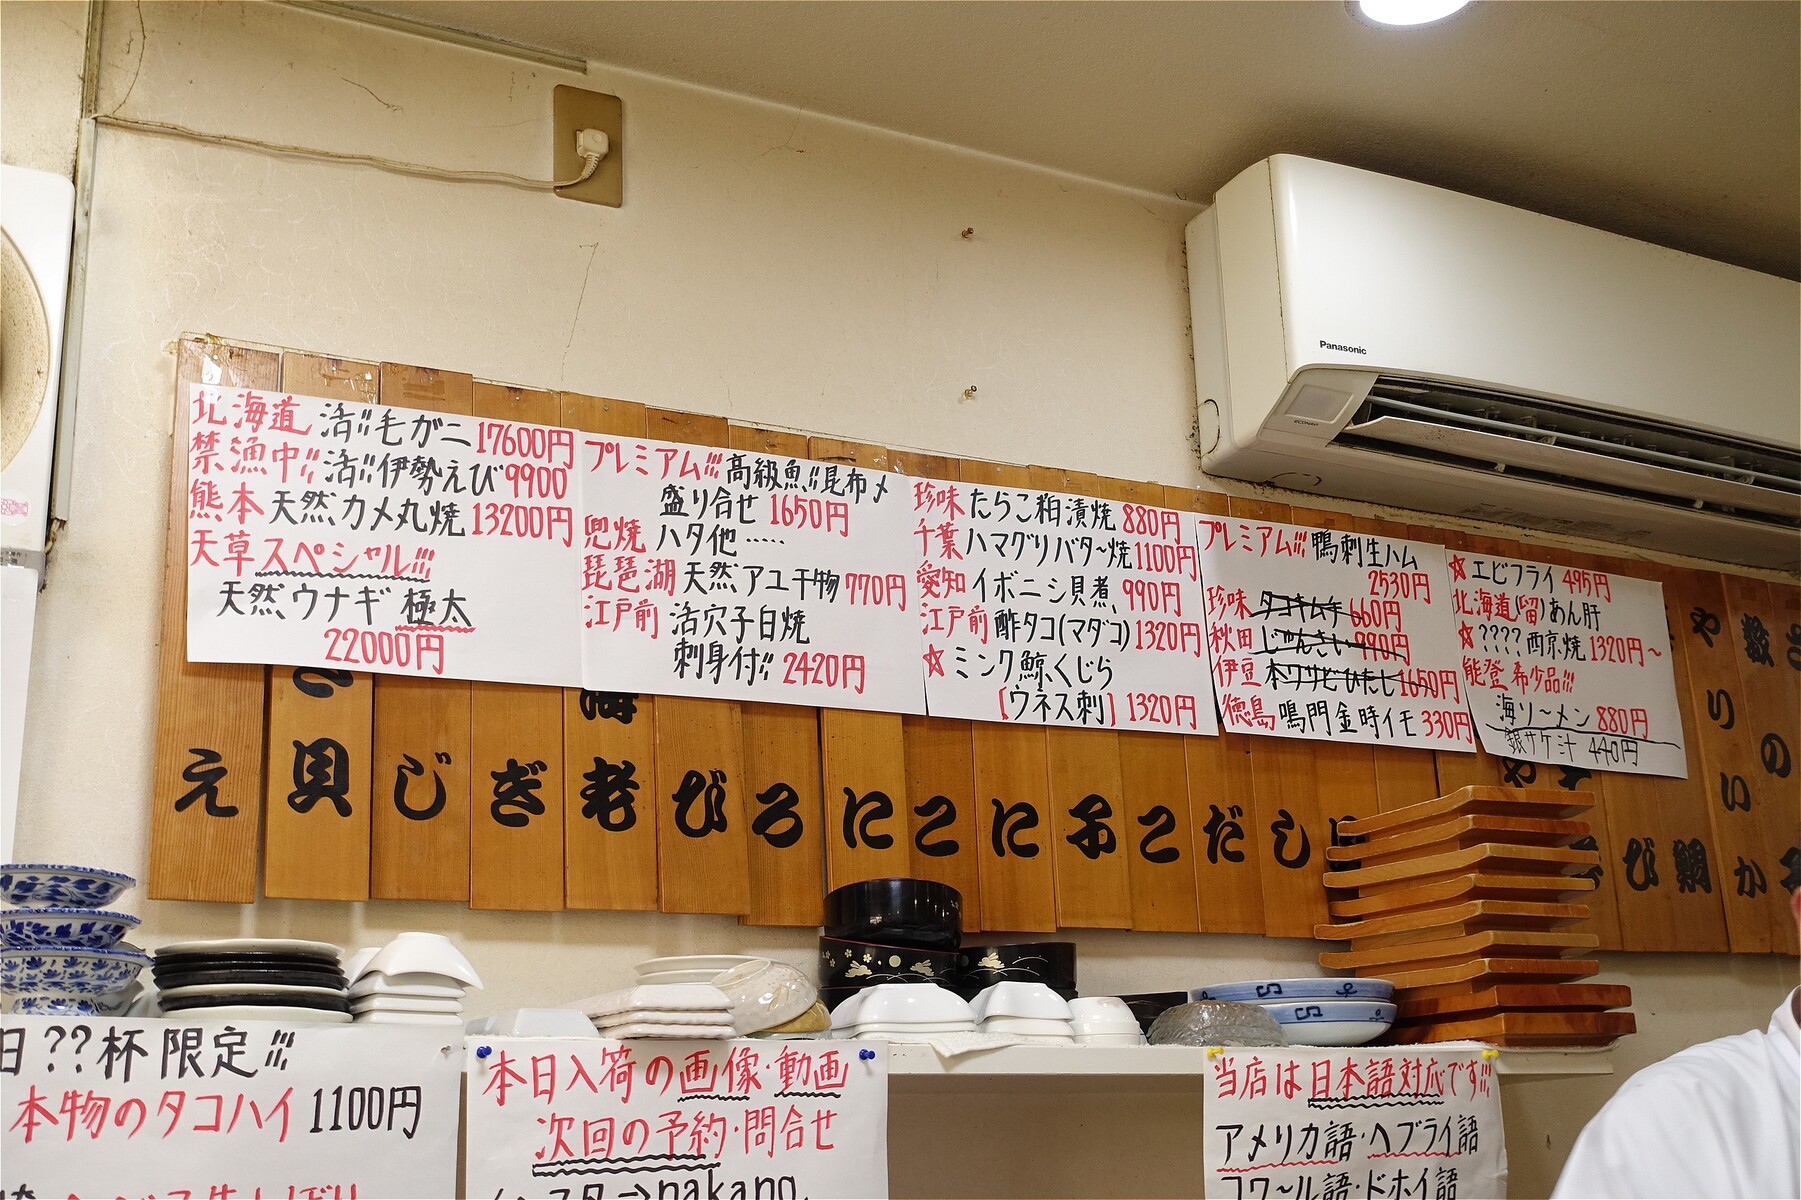 Panasonic
北海道 活!!毛ガニ 17600円
禁漁中!! 活!!伊勢えび 9900
熊本 天然カメ丸焼 13200円
天草スペシャル!!!
天然ウナギ 極太
22000円
プレミアム!!! 高級魚!!昆布〆
盛り合せ 1650円
兜焼 ハタ他……
琵琶湖 天然アユ干物 770円
江戸前 活穴子白焼
刺身付!! 2420円
珍味 たらこ粕漬焼 880円
千葉 ハマグリバター焼 1100円
愛知 イボニシ貝煮 990円
江戸前 酢タコ(マダコ) 1320円
☆ミンク鯨くじら
[ウネス刺] 1320円
プレミアム!!! 鴨刺生ハム
2530円
珍味 タコキムチ 660円
秋田 じゅんさい 990円
伊豆 本ワサビひたし 1650円
徳島 鳴門金時イモ 330円
☆エビフライ 495円
北海道(留)あん肝
☆????西京焼 1320円~
能登 希少品!!!
海ソーメン 880円
銀サケ汁 440円
え
貝
じ
ぎ
海老
び
ろ
に
こ
に
子
こ
だ
し
び
鯛
やりいか
数の子
日??杯限定!!!
本物のタコハイ 1100円
本日入荷の画像・動画
次回の予約・問合せ
インスタ→nakano.
当店は日本語対応です!!!
アメリカ語・ヘブライ語
コワール語・ドホイ語